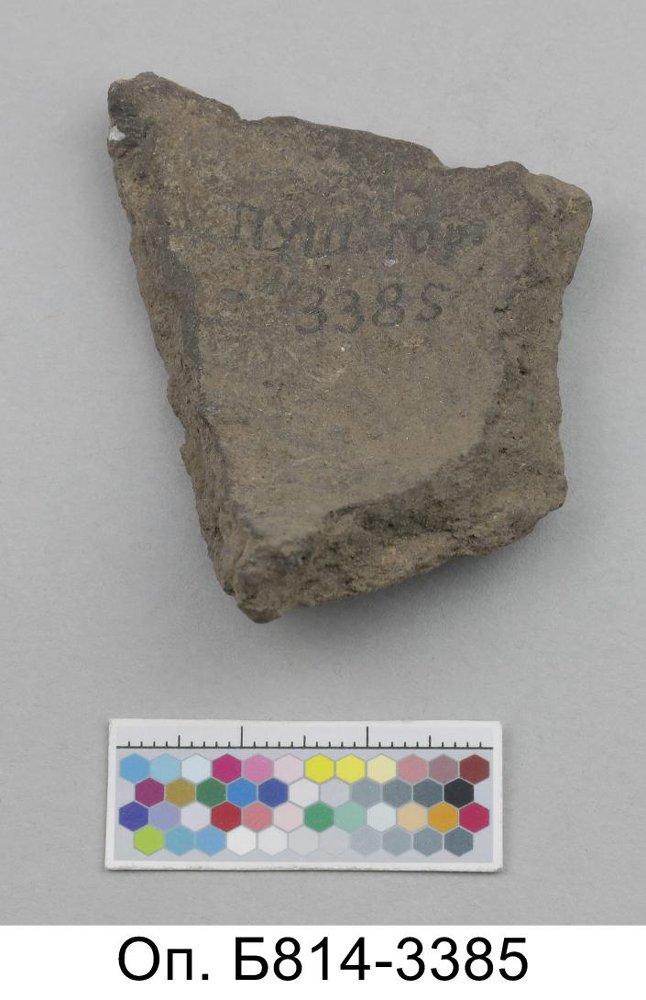 Пуш гор
3385
Оп. Б814-3385